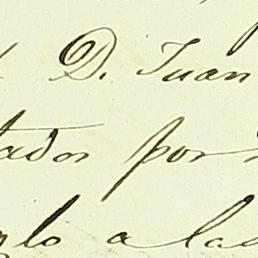 D. Juan
tados por
nlo a las